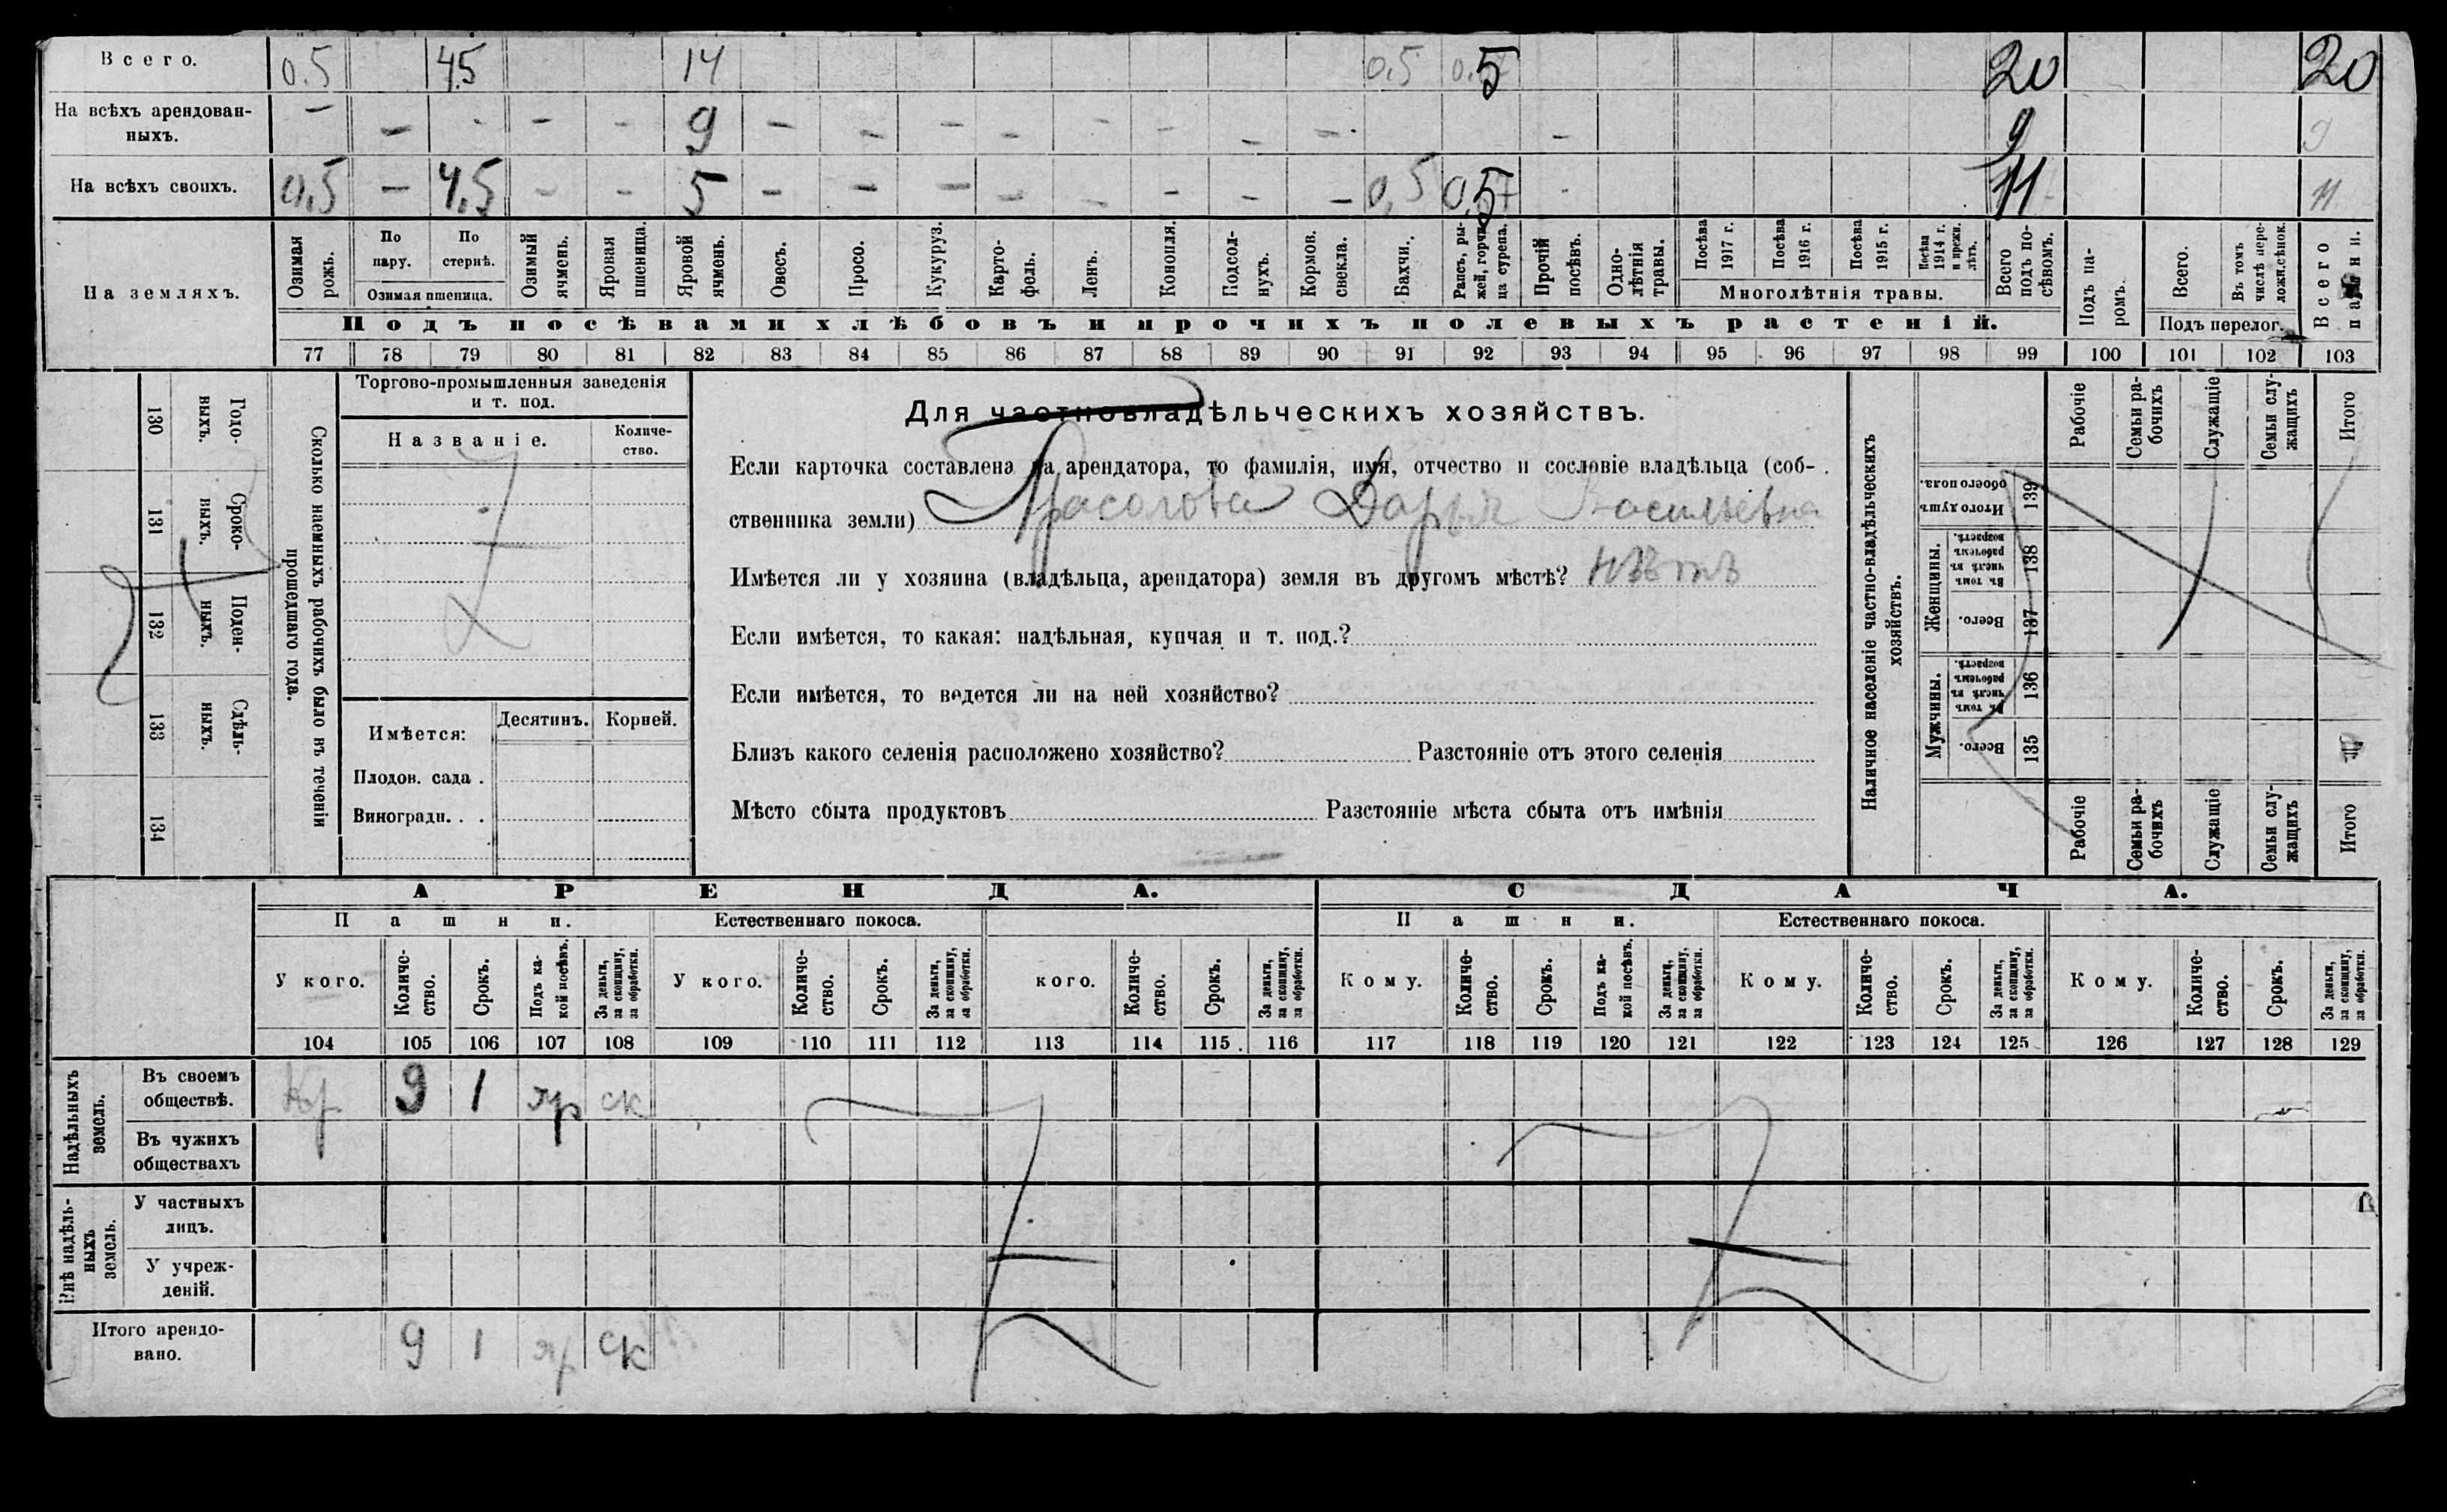 Всего. 0.5 4.5 14 0,5 5 20 20
На всѣхъ арендован-
ныхъ. — — - — - 9 — — — — — — — —. — 9 9
На всѣхъ своихъ. 0,5 — 4,5 — - 5 — — — — — — — — 0,5 0,5 11 11
На земляхъ.
Озимая
рожь.
По
пару.
По
стернѣ.
Озимая пшеница.
Озимый
ячмень.
Яровая
пшеница.
Яровой
ячмень.
Овесъ.
Просо.
Кукуруз.
Карто-
фель.
Ленъ.
Конопля.
Подсол-
нухъ.
Кормов.
свекла.
Бахчи.
Рапсъ, ры-
жей, горчи-
ца сурепа.
Прочій
посѣвъ.
Одно-
лѣтнія
травы.
Посѣва
1917 г.
Посѣва
1916 г.
Посѣва
1915 г.
Посѣва
1914 г.
и прежн.
лѣтъ.
Многолѣтнія травы.
Всего
подъ по-
сѣвомъ.
Подъ па-
ромъ.
Всего.
Въ томъ
числѣ пере-
ложн.сѣнок.
Подъ перелог.
Всего
пашни.
Подъ посѣвами хлѣбовъ и прочихъ полевыхъ растеній.
77 78 79 80 81 82 83 84 85 86 87 88 89 90 91 92 93 94 95 96 97 98 99 100 101 102 103
130 131 132 133 134
Годо-
выхъ.
Сроко-
ныхъ.
Поден-
ныхъ.
Сдѣль-
ныхъ.
Сколько наемныхъ рабочихъ было въ теченіи
прошедшаго года.
Торгово-промышленныя заведенія
и т. под.
Названіе.
Количе-
ство.
Имѣется:
Десятинъ. Корней.
Плодов. сада .
Виноградн. . .
Для частновладѣльческихъ хозяйствъ.
Если карточка составлена на арендатора, то фамилія, имя, отчество и сословіе владѣльца (соб-
ственника земли) Дарья Васильевна
Имѣется ли у хозяина (владѣльца, арендатора) земля въ другомъ мѣстѣ? нѣтъ
Если имѣется, то какая: надѣльная, купчая и т. под.?
Если имѣется, то ведется ли на ней хозяйство?
Близъ какого селенія расположено хозяйство? Разстояніе отъ этого селенія
Мѣсто сбыта продуктовъ Разстояніе мѣста сбыта отъ имѣнія
Наличное населеніе частно-владѣльческихъ
хозяйствъ.
Рабочіе
Семьи ра-
бочихъ
Служащіе
Семьи слу-
жащихъ
Итого
Итого душъ
обоего пола.
139
Женщины.
Въ томъ
числѣ въ
рабочемъ
возрастѣ.
138
Всего.
137
Мужчины.
Въ томъ
числѣ въ
рабочемъ
возрастѣ.
136
Всего.
135
Рабочіе
Семьи ра-
бочихъ
Служащіе
Семьи слу-
жащихъ
Итого
АРЕНДА. СДАЧА.
Пашни. Естественнаго покоса. Пашни. Естественнаго покоса.
У кого.
Количе-
ство.
Срокъ.
Подъ ка-
кой посѣвъ.
За деньги,
за скопщину,
за обработки.
У кого.
Количе-
ство.
Срокъ.
За деньги,
за скопщину,
за обработки.
кого.
Количе-
ство.
Срокъ.
За деньги,
за скопщину,
за обработки.
Кому.
Количе-
ство.
Срокъ.
Подъ ка-
кой посѣвъ.
За деньги,
за скопщину,
за обработки.
Кому.
Количе-
ство.
Срокъ.
За деньги,
за скопщину,
за обработки.
Кому.
Количе-
ство.
Срокъ.
За деньги,
за скопщину,
за обработки.
104 105 106 107 108 109 110 111 112 113 114 115 116 117 118 119 120 121 122 123 124 125 126 127 128 129
Надѣльныхъ
земель.
Въ своемъ
обществѣ. Кр 9 1 яр ск
Въ чужихъ
обществахъ
Внѣ надѣль-
ныхъ
земель.
У частныхъ
лицъ.
У учреж-
деній.
Итого арендо-
вано. 9 1 яр ск